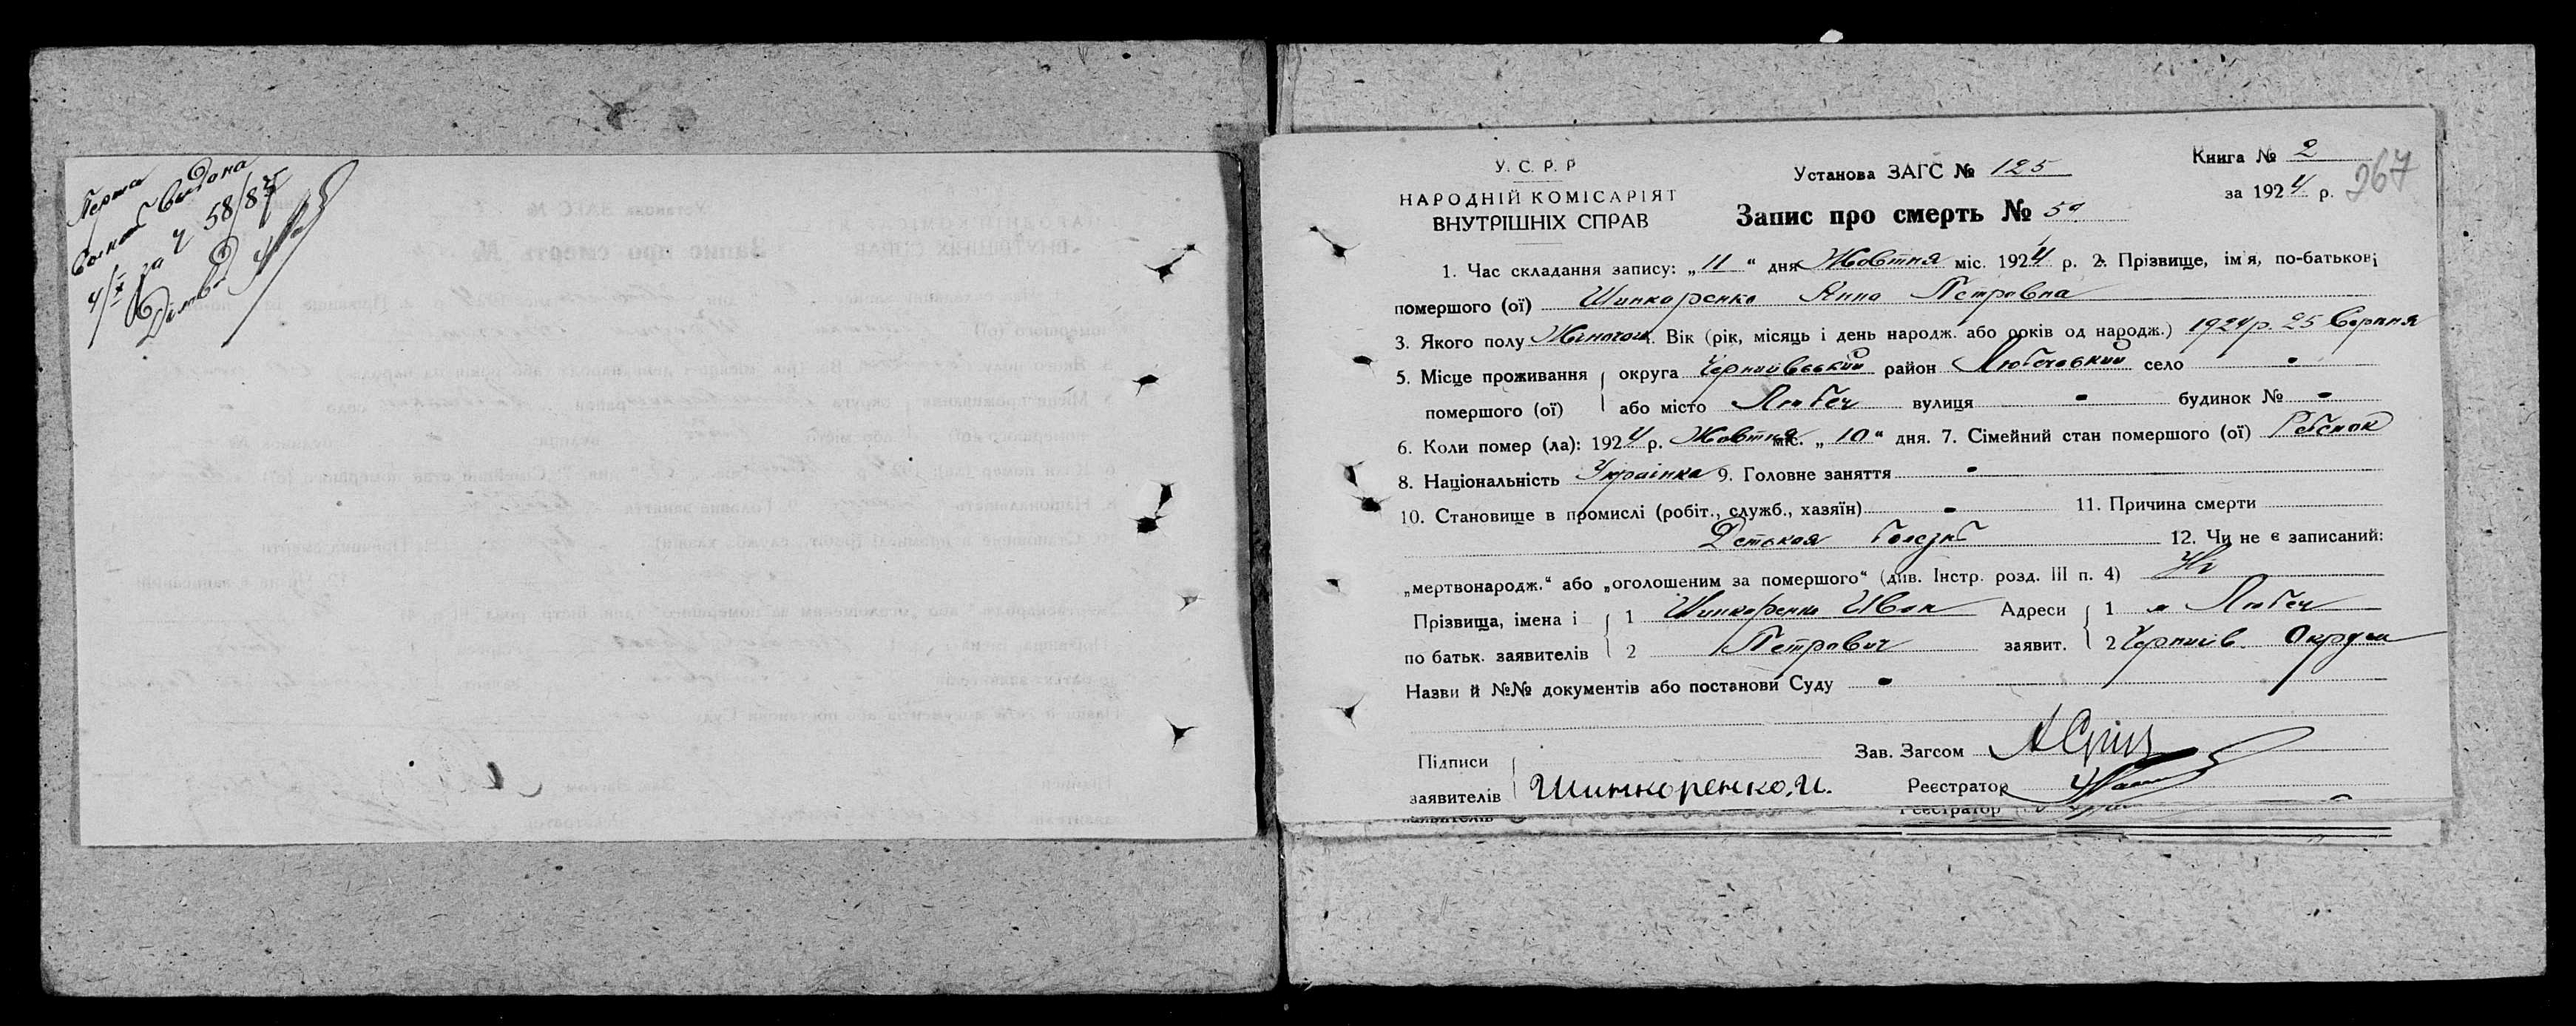 Перша
видана
4/X за Ч 58/87
У. С. Р. Р
НАРОДНІЙ КОМІСАРІЯТ
ВНУТРІШНІХ СПРАВ
Установа ЗАГС № 125
Запис про смерть № 59
Книга № 2
за 1924 р.
267
1. Час складання запису: „11“ дня Жовтня міс. 1924 р. 2. Прізвище, ім'я, по-батькові
помершого (ої) Шинкаренко Анна Петровна
3. Якого полу Жиночого 4. Вік (рік, місяць і день народж. або років од народж.) 1924 р. 25 Серпня
5. Місце проживання округа Чернигівський район Любечевский село -
помершого (ої) або місто Любеч вулиця - будинок № -
6. Коли помер (ла): 1924 р. Жовтня міс. „10“ дня. 7. Сімейний стан помершого (ої) Ребенок
8. Національність Украінка 9. Головне заняття -
10. Становище в промислі (робіт., служб., хазяїн) - 11. Причина смерти
Детская болезнь 12. Чи не є записаний:
„мертвонародж.“ або „оголошеним за помершого“ (див. Інстр. розд. III п. 4) Ні
Прізвища, імена і 1 Шинкаренко Иван Адреси 1 м Любеч
по батьк. заявителів 2 Петрович заявит. 2 Черниів. Округи
Назви й №№ документів або постанови Суду -
Підписи Зав. Загсом
заявителів Шинкоренко. И. Реєстратор
заявителів Реєстратор